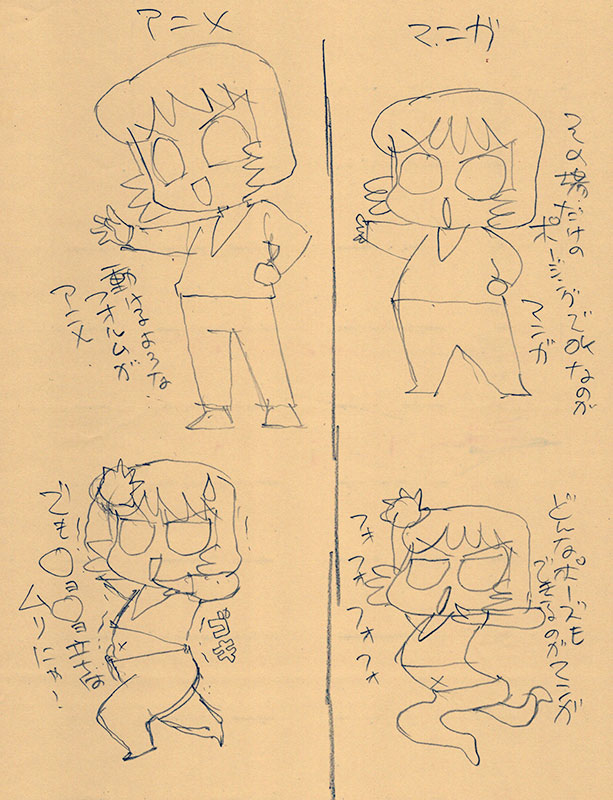 アニメ
マンガ
その場だけの
ポージングでOKなのが
マンガ
動けるような
フォルムが
アニメ
どんなポーズも
できるのがマンガ
フォ
フォ
フォ
フォ
でも〇ョ〇ョ立ちは
ムリにゃー!